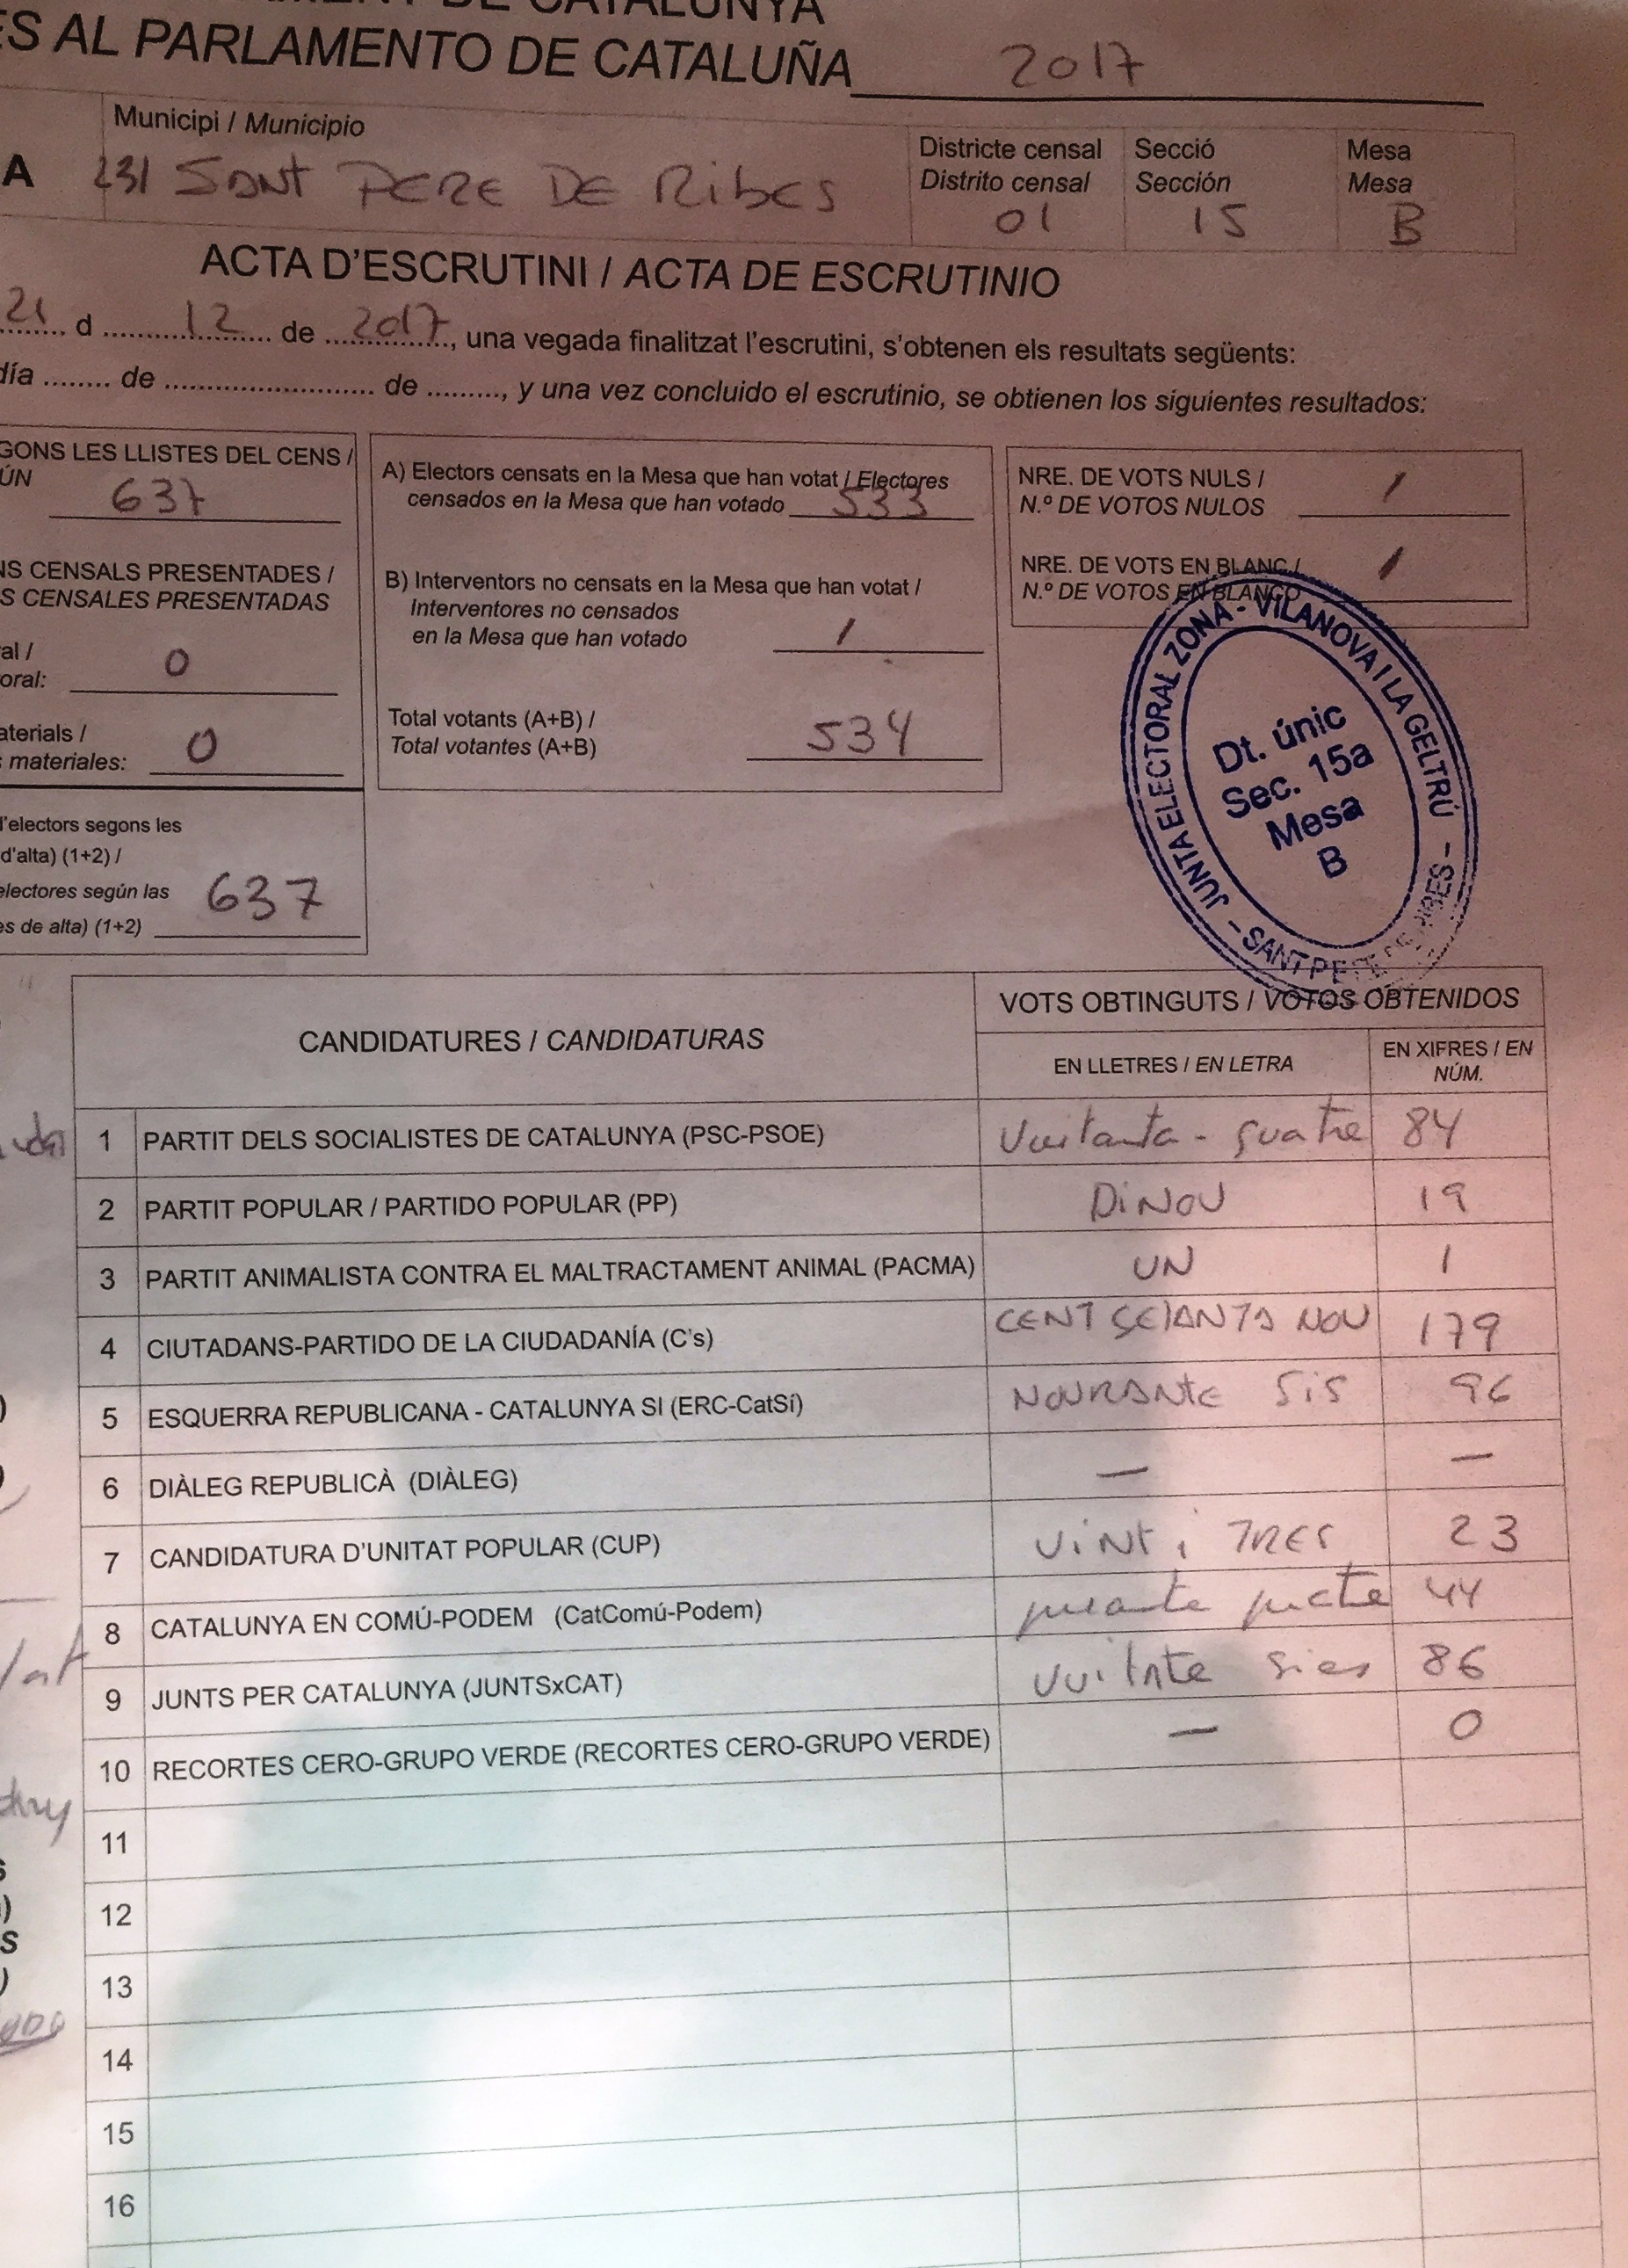 AMENT DE CATALUNYA
ES AL PARLAMENTO DE CATALUÑA 2017
Municipi / Municipio
A 231 SANT PERE DE RIBES
Districte censal
Distrito censal
01
Secció
Sección
15
Mesa
Mesa
B
ACTA D'ESCRUTINI / ACTA DE ESCRUTINIO
21 d 12 de 2017, una vegada finalitzat l'escrutini, s'obtenen els resultats següents:
día ........ de ........................ de ........., y una vez concluido el escrutinio, se obtienen los siguientes resultados:
GONS LES LLISTES DEL CENS /
ÚN
637
NS CENSALS PRESENTADES /
S CENSALES PRESENTADAS
ral /
oral: 0
aterials /
s materiales: 0
d'electors segons les
d'alta) (1+2) /
electores según las
es de alta) (1+2) 637
A) Electors censats en la Mesa que han votat / Electores
censados en la Mesa que han votado 533
B) Interventors no censats en la Mesa que han votat /
Interventores no censados
en la Mesa que han votado 1
Total votants (A+B) /
Total votantes (A+B) 534
NRE. DE VOTS NULS /
N.º DE VOTOS NULOS 1
NRE. DE VOTS EN BLANC /
N.º DE VOTOS EN BLANCO 1
JUNTA ELECTORAL ZONA - VILANOVA I LA GELTRÚ - SANT PERE DE RIBES -
Dt. únic
Sec. 15a
Mesa
B
CANDIDATURES / CANDIDATURAS
VOTS OBTINGUTS / VOTOS OBTENIDOS
EN LLETRES / EN LETRA
EN XIFRES / EN
NÚM.
1 PARTIT DELS SOCIALISTES DE CATALUNYA (PSC-PSOE) Vuitanta - quatre 84
2 PARTIT POPULAR / PARTIDO POPULAR (PP) DiNOU 19
3 PARTIT ANIMALISTA CONTRA EL MALTRACTAMENT ANIMAL (PACMA) UN 1
4 CIUTADANS-PARTIDO DE LA CIUDADANÍA (C's) CENT SETANTA NOU 179
5 ESQUERRA REPUBLICANA - CATALUNYA SI (ERC-CatSí) NOURANTE SiS 96
6 DIÀLEG REPUBLICÀ (DIÀLEG) — —
7 CANDIDATURA D'UNITAT POPULAR (CUP) ViNT i TRES 23
8 CATALUNYA EN COMÚ-PODEM (CatComú-Podem) 44
9 JUNTS PER CATALUNYA (JUNTSxCAT) 86
10 RECORTES CERO-GRUPO VERDE (RECORTES CERO-GRUPO VERDE) — 0
11
12
13
14
15
16